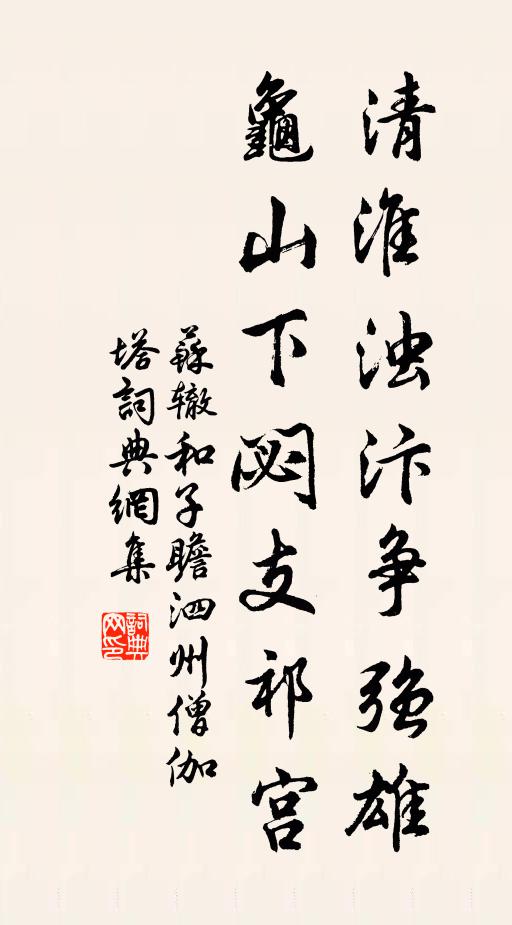 清淮浊汴争强雄
龜山下閟支祁宫
蘇辙和子瞻泗州僧伽
塔詞典網集
詞典网印